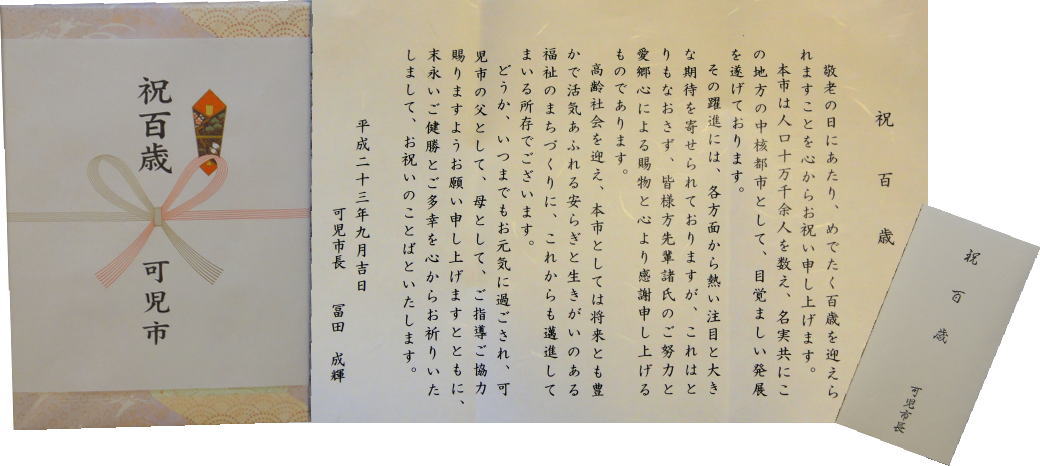 祝百歳
可児市
祝百歳
敬老の日にあたり、めでたく百歳を迎えら
れますことを心からお祝い申し上げます。
本市は人口十万千余人を数え、名実共にこ
の地方の中核都市として、目覚ましい発展
を遂げております。
その躍進には、各方面から熱い注目と大き
な期待を寄せられておりますが、これはと
りもなおさず、皆様方先輩諸氏のご努力と
愛郷心による賜物と心より感謝申し上げる
ものであります。
高齢社会を迎え、本市としては将来とも豊
かで活気あふれる安らぎと生きがいのある
福祉のまちづくりに、これからも邁進して
まいる所存でございます。
どうか、いつまでもお元気に過ごされ、可
児市の父として、母として、ご指導ご協力
賜りますようお願い申し上げますとともに、
末永いご健勝とご多幸を心からお祈りいた
しまして、お祝いのことばといたします。
平成二十三年九月吉日
可児市長 冨田 成輝
祝百歳
可児市長